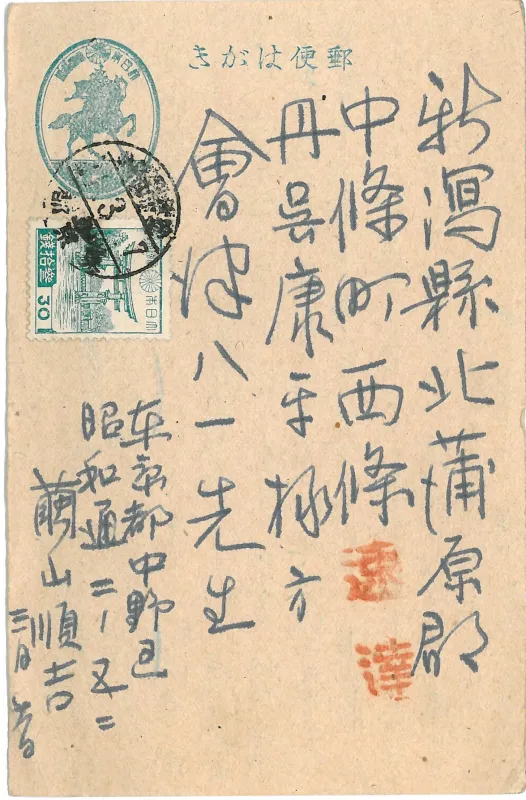 郵便はがき
新潟縣北蒲原郡
中條町西條
速達
丹呉康平様方
會津八一先生
東京都中野区
昭和通二ノ五二
繭山順吉
30